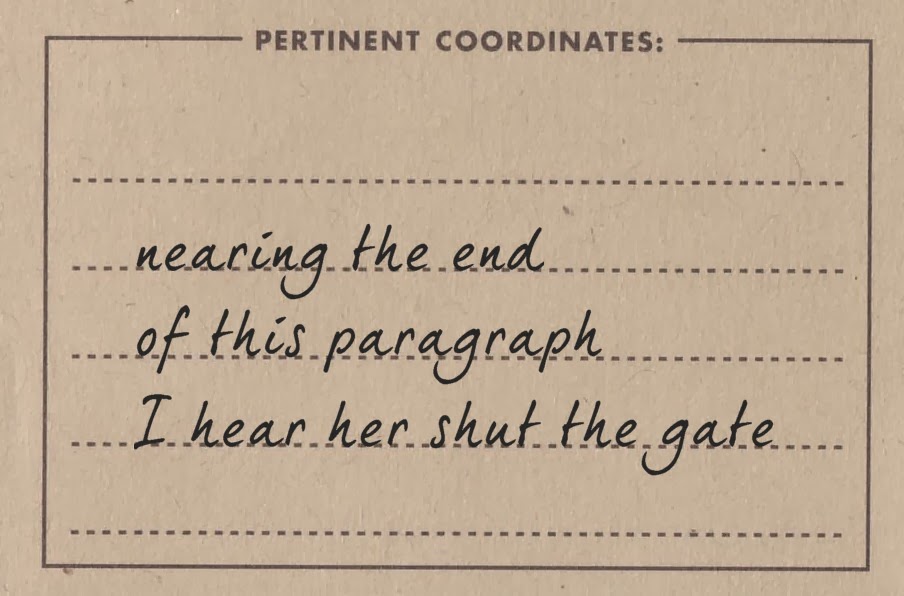 PERTINENT COORDINATES:
nearing the end
of this paragraph
I hear her shut the gate